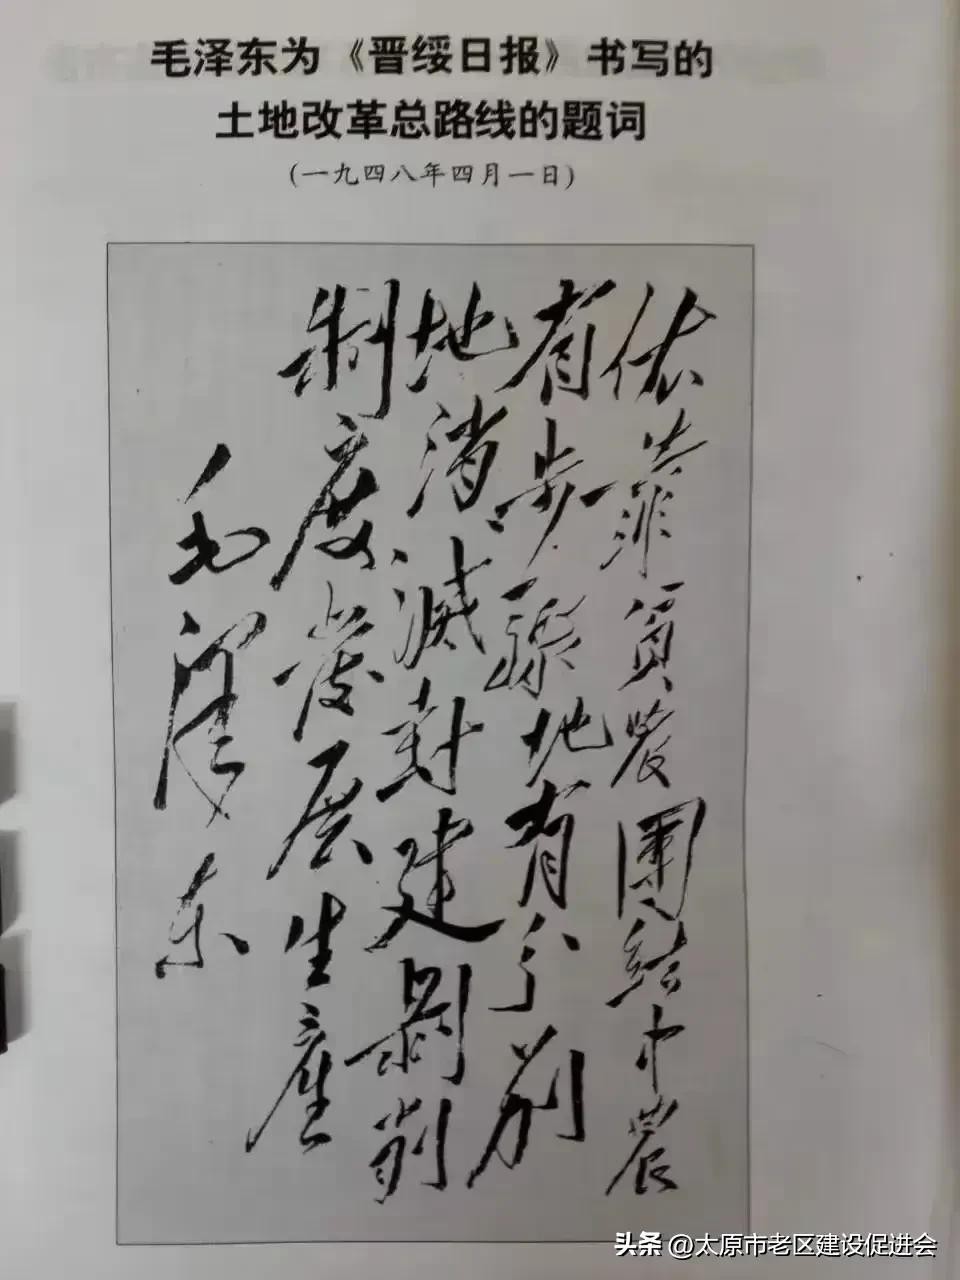 毛泽东为《晋绥日报》书写的
土地改革总路线的题词
(一九四八年四月一日)
依靠貧农團结中农
有步骤地有分别
地消滅封建剥削
制度发展生產
毛泽东
头条 @太原市老区建设促进会